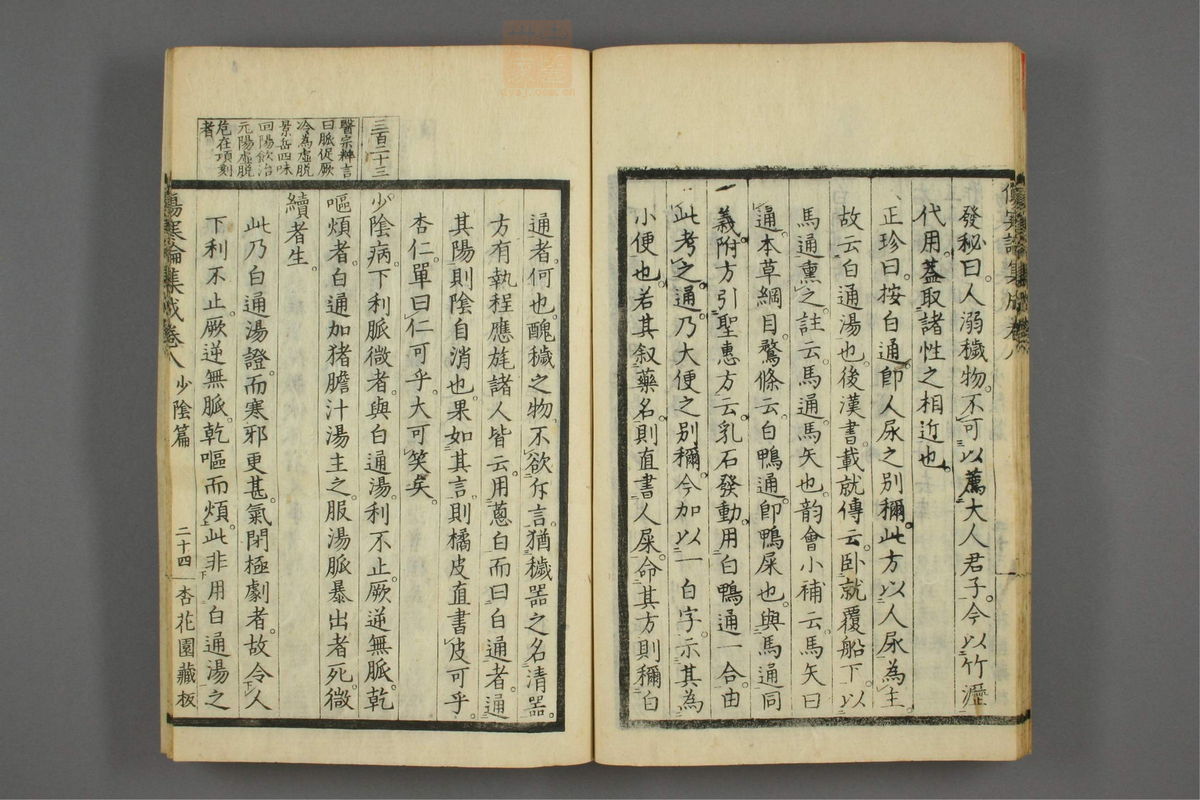 傷寒論集成卷八
發秘曰。人溺穢物。不可以薦大人君子。今以竹瀝
代用。蓋取諸性之相近也。
正珍曰。按白通。卽人尿之別稱。此方以人尿為主。
故云白通湯也。後漢書。載就傳云。臥就覆船下。以
馬通熏之。註云。馬通。馬矢也。韵會小補云。馬矢曰
通。本草綱目。鶩條云。白鴨通。卽鴨屎也。與馬通同
義。附方引聖惠方云。乳石發動。用白鴨通一合。由
此考之。通。乃大便之別稱。今加以一白字。示其為
小便也。若其叙藥名。則直書人尿。命其方則稱白
通者。何也。醜穢之物。不欲斥言。猶穢器之名清器。
方有執程應旄諸人皆云。用蔥白而曰白通者。通
其陽則陰自消也。果如其言。則橘皮直書皮可乎。
杏仁。單曰仁可乎。大可笑矣。
三百二十三
少陰病。下利脈微者。與白通湯。利不止。厥逆無脈。乾
嘔煩者。白通加猪膽汁湯主之。服湯脈暴出者死。微
續者生。
醫宗辨言
曰脈促厥
冷為虛脱
景岳四味
回陽飲治
元陽虛脫
危在頃刻
者
此乃白通湯證。而寒邪更甚。氣閉極劇者。故令人
下利不止。厥逆無脈。乾嘔而煩。此非用白通湯之
傷寒論集成卷八 少陰篇 二十四 杏花園藏板
www.sysj.com.cn